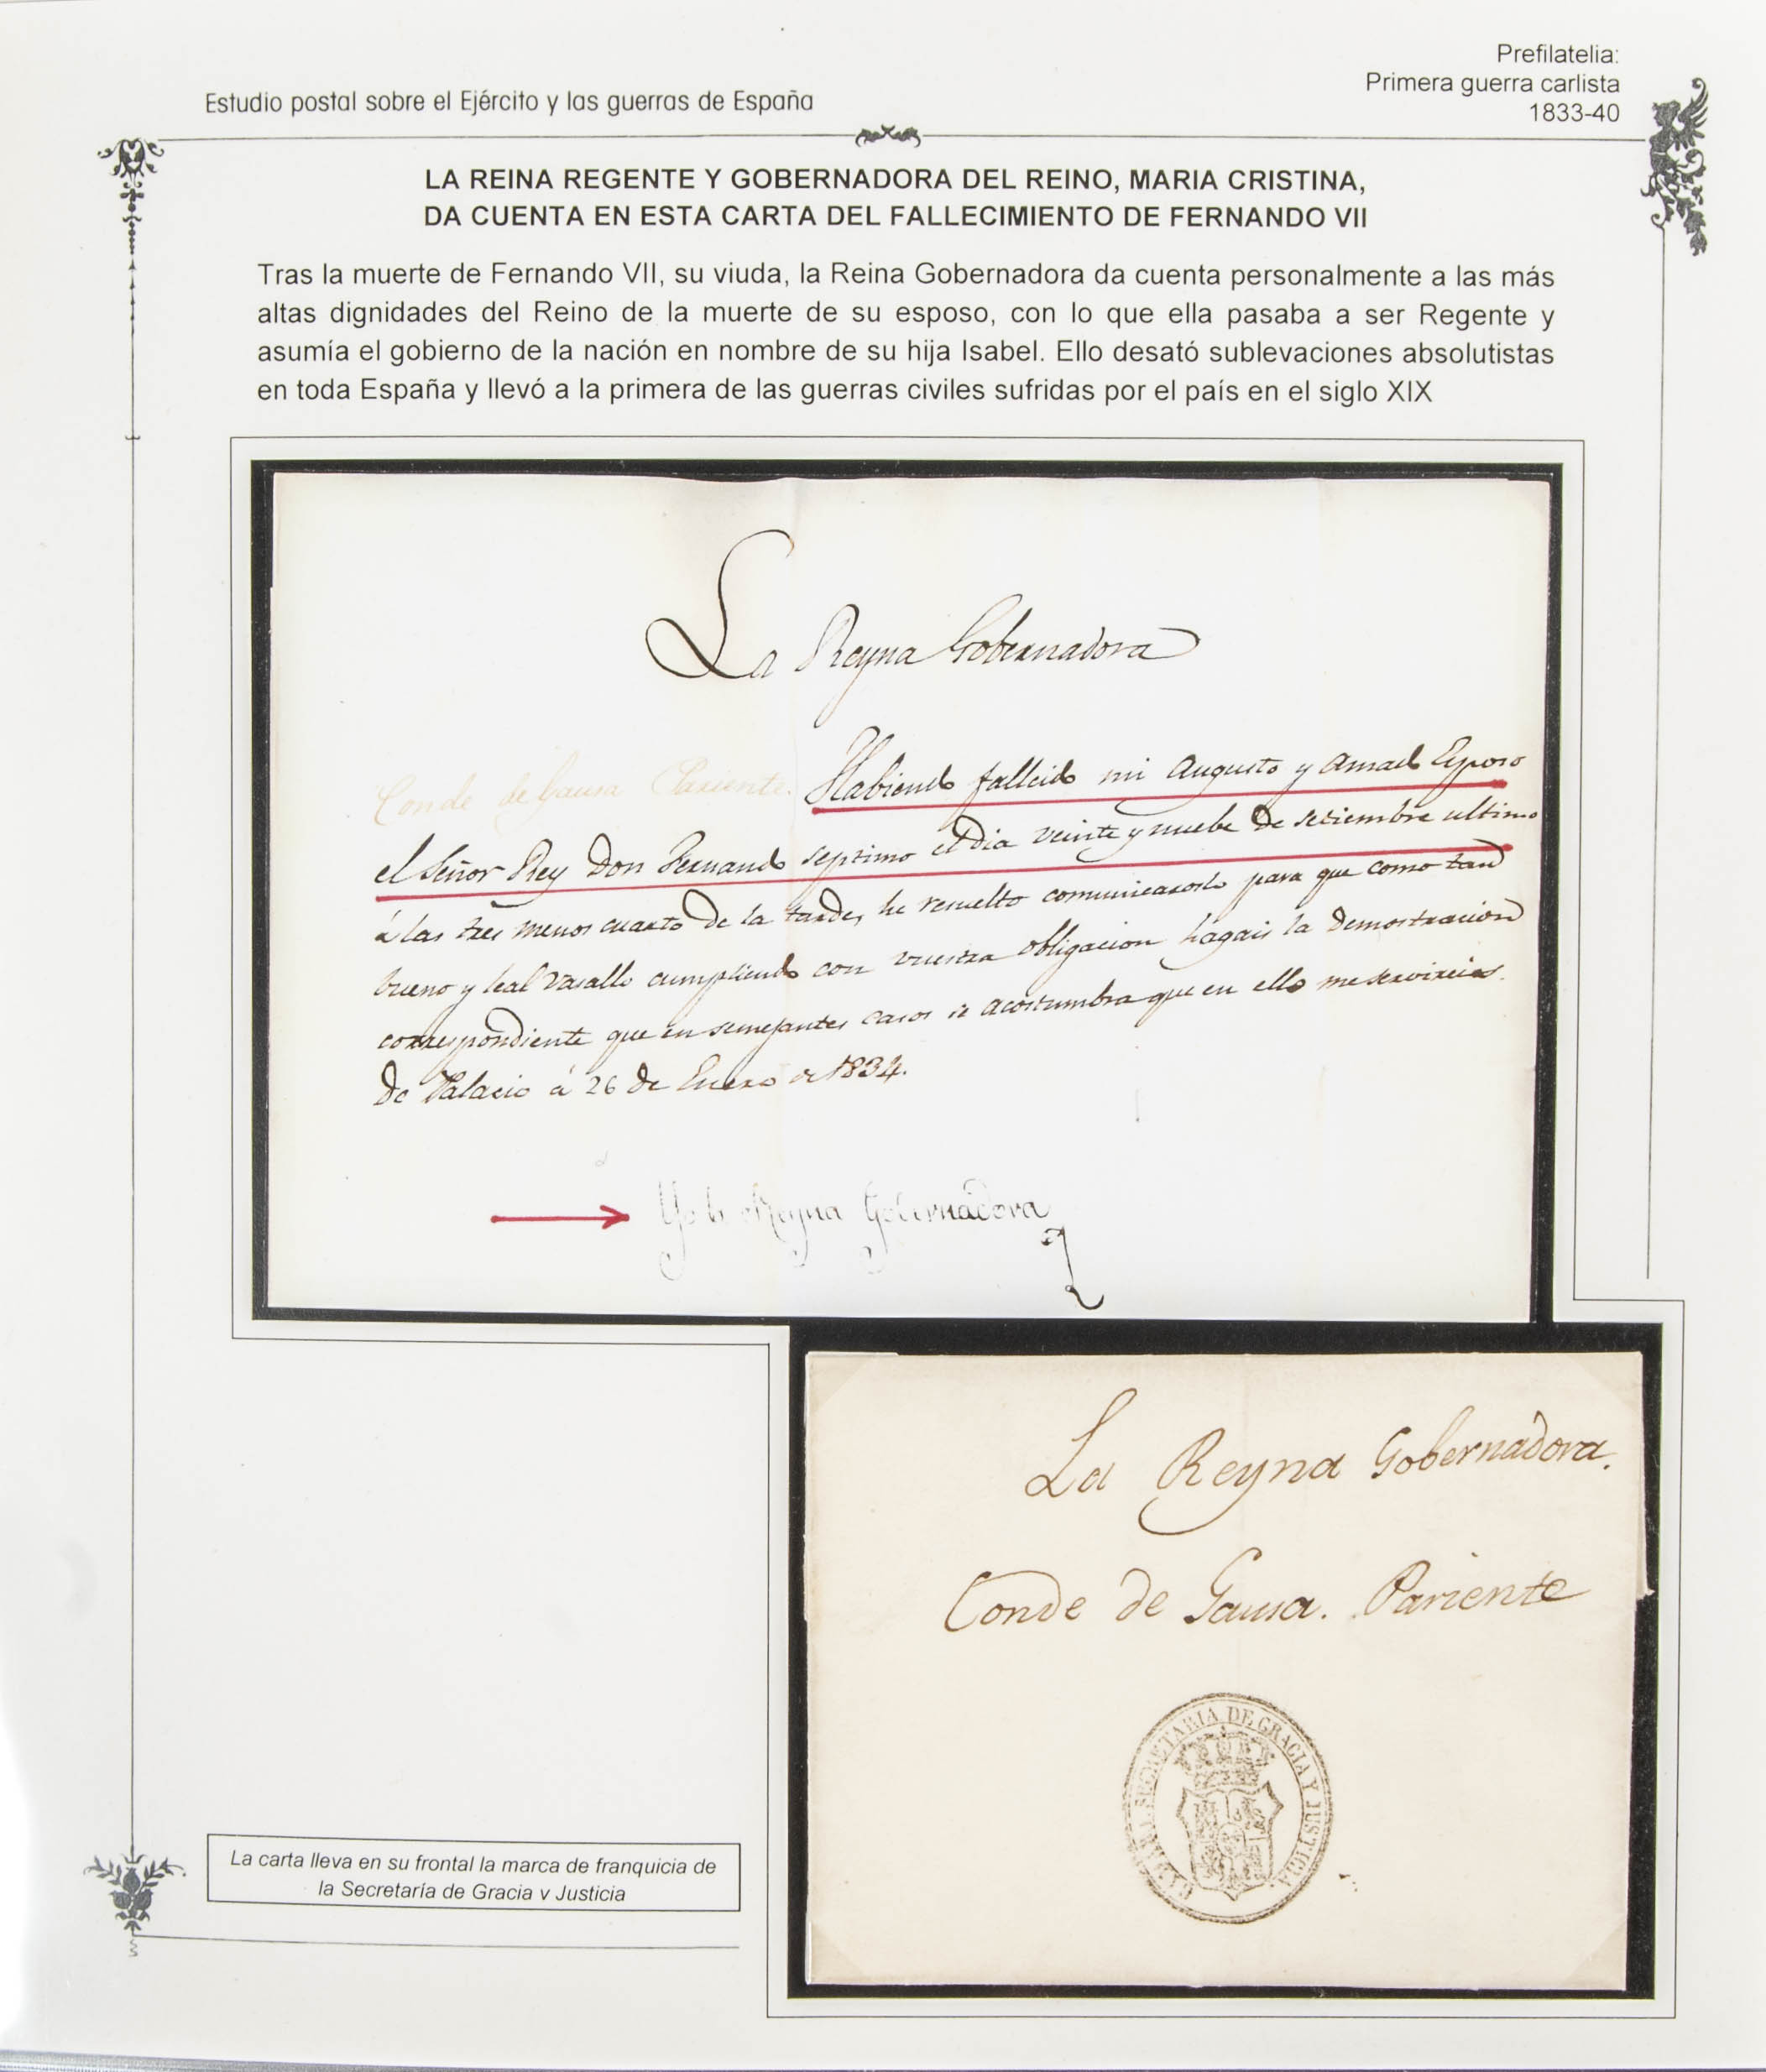 Prefilatelia:
Primera guerra carlista
1833-40
Estudio postal sobre el Ejército y las guerras de España
LA REINA REGENTE Y GOBERNADORA DEL REINO, MARIA CRISTINA,
DA CUENTA EN ESTA CARTA DEL FALLECIMIENTO DE FERNANDO VII
Tras la muerte de Fernando VII, su viuda, la Reina Gobernadora da cuenta personalmente a las más
altas dignidades del Reino de la muerte de su esposo, con lo que ella pasaba a ser Regente y
asumía el gobierno de la nación en nombre de su hija Isabel. Ello desató sublevaciones absolutistas
en toda España y llevó a la primera de las guerras civiles sufridas por el país en el siglo XIX
La Reyna Gobernadora
Conde de Gausa Pariente. Habiendo fallecido mi Augusto y Amado Esposo
el Señor Rey Don Fernando septimo el dia veinte y nuebe de Setiembre ultimo
á las tres menos cuarto de la tarde, he resuelto comunicaroslo para que como tan
bueno y leal vasallo cumpliendo con vuestra obligacion hagais la demostracion
correspondiente que en semejantes casos se acostumbra que en ello me servireis.
De Palacio á 26 de Enero de 1834.
Yo la Reyna Gobernadora
La Reyna Gobernadora.
Conde de Gausa. Pariente
SECRETARIA DE GRACIA Y JUSTICIA
La carta lleva en su frontal la marca de franquicia de
la Secretaría de Gracia v Justicia